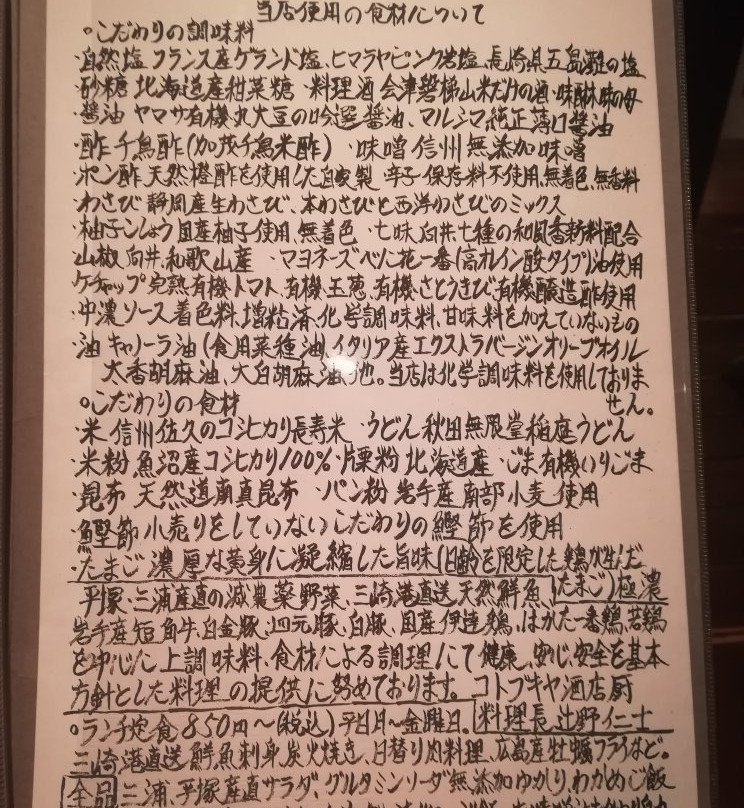 当店使用の食材について
○こだわりの調味料
・自然塩 フランス産ゲランド塩、ヒマラヤピンク岩塩、長崎県五島灘の塩
・砂糖 北海道産甜菜糖 ・料理酒 会津磐梯山米だけの酒・味醂味の母
・醤油 ヤマサ有機丸大豆の吟選醤油、マルシマ純正薄口醤油
・酢 千鳥酢(加茂千鳥米酢) ・味噌 信州無添加味噌
・ポン酢 天然橙酢を使用した自家製 辛子 保存料不使用、無着色、無香料
・わさび 静岡産生わさび、本わさびと西洋わさびのミックス
・柚子こしょう 国産柚子使用、無着色 ・七味 向井七種の和風香新料配合
・山椒 向井、和歌山産 ・マヨネーズ べに花一番(高オレイン酸タイプ)油使用
・ケチャップ 完熟有機トマト、有機玉葱、有機さとうきび、有機醸造酢使用
・中濃ソース 着色料、増粘済、化学調味料、甘味料を加えていないもの
・油 キャノーラ油(食用菜種油)、イタリア産エクストラバージンオリーブオイル
太香胡麻油、太白胡麻油、他。当店は化学調味料を使用しておりま
せん。
○こだわりの食材
・米 信州佐久のコシヒカリ長寿米 ・うどん 秋田無限堂稲庭うどん
・米粉 魚沼産コシヒカリ100% ・片栗粉 北海道産 ・ごま 有機いりごま
・昆布 天然道南真昆布 ・パン粉 岩手産南部小麦使用
・鰹節 小売りをしていないこだわりの鰹節を使用
・たまご 濃厚な黄身に凝縮した旨味(日齢を限定した鶏が生んだ
たまご)極濃
平塚・三浦産直の減農薬野菜、三崎港直送天然鮮魚、
岩手産短角牛、白金豚、四元豚、白豚、国産伊達鶏、はかた一番鶏、若鶏
を中心に上調味料、食材による調理にて健康、安心、安全を基本
方針とした料理の提供に努めております。コトブキヤ酒店厨
料理長 辻野仁士
○ランチ定食850円〜(税込) 平日月〜金曜日。
三崎港直送鮮魚刺身、炭火焼き、日替り肉料理、広島産牡蠣フライなど。
全品 三浦、平塚産直サラダ、グルタミンソーダ無添加ゆかりわかめご飯